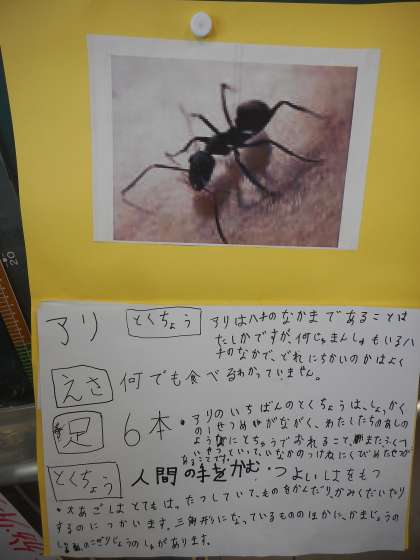 アリ
とくちょう
アリはハチのなかまであることは
たしかですが、何じゅまんしゅもいるハ
チのなかで、どれにちかいのかはよく
わかっていません。
えさ
何でも食べる
足
6本
・アリのいちばんのとくちょうは、しょっかく
の一せつめがながく、わたしたちのあしの
ようにとちゅうでおれること、またふくへ
いせつといって、いなかのつけねにくびめたせつが
あることです。
とくちょう
人間の手をかむ・つよいしはをもつ
・大あごはとても はったつしていてものをかんだり、かみくだいたり
するのにつかいます。三角形になっているもののほかに、かまじょうの
のこぎりじょうのしゅがあります。
20